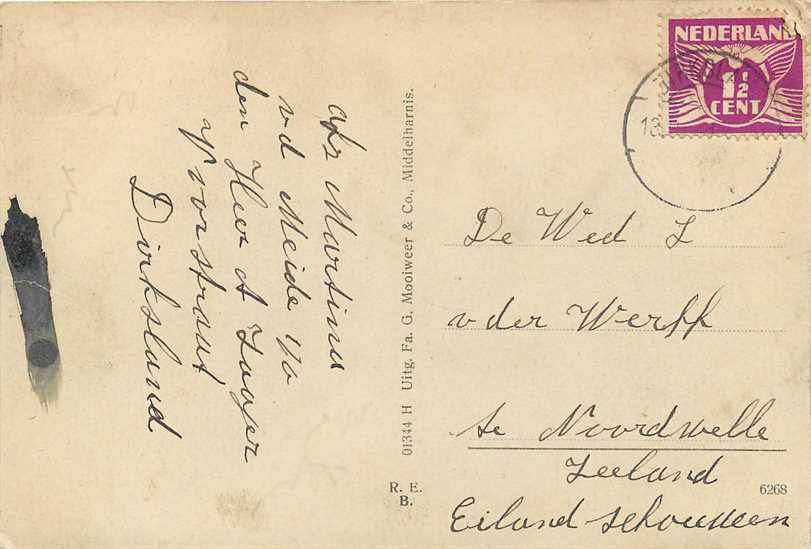 Afz Martina
v d Meide p/a
den Heer A Jager
Voorstraat
Dirksland
01344 H Uitg. Fa. G. Mooiweer & Co., Middelharnis.
R. E.
B.
NEDERLAND
1½
CENT
18
De Wed J
v der Werff
te Noordwelle
Zeeland
Eiland Schouwen
6268